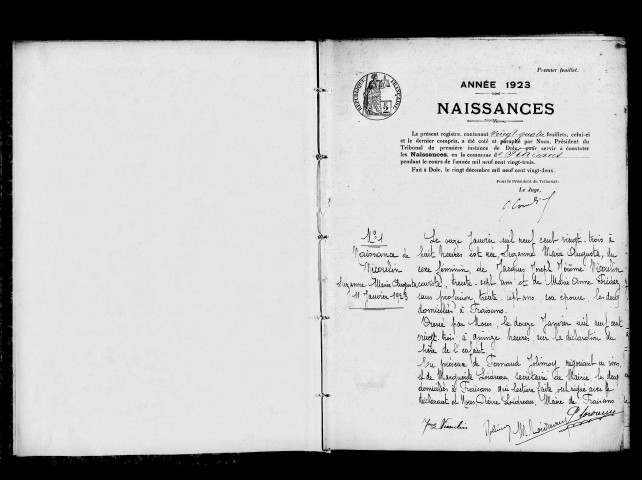 Premier feuillet.
RÉPUBLIQUE FRANÇAISE
ANNÉE 1923
NAISSANCES
Le présent registre, contenant vingt quatre feuillets, celui-ci
et le dernier compris, a été coté et paraphé par Nous, Président du
Tribunal de première instance de Dole, pour servir à constater
les Naissances, en la commune de Fraisans
pendant le cours de l'année mil neuf cent vingt-trois.
Fait à Dole, le vingt décembre mil neuf cent vingt-deux.
Pour le Président du Tribunal:
Le Juge,
N° 1
Naissance de
Suzanne Marie Augusta
11 Janvier 1923
Le onze Janvier mil neuf cent vingt-trois à
huit heures est née, Suzanne Marie Augusta, du
sexe féminin, de Jacques Joseph Jérôme
trente-sept ans et de Marie Anne
sans profession trente-sept ans, son épouse, les deux
domiciliés à Fraisans.
Dressé par Nous, le douze Janvier mil neuf cent
vingt-trois à quinze heures, sur la déclaration du
père de l'enfant.
En présence de Fernand Jolimoy négociant en vins,
et de Marguerite Loidreau, secrétaire de Mairie les deux
domiciliés à Fraisans, qui lecture faite ont signé avec le
déclarant et Nous Pierre Loidreau, Maire de Fraisans